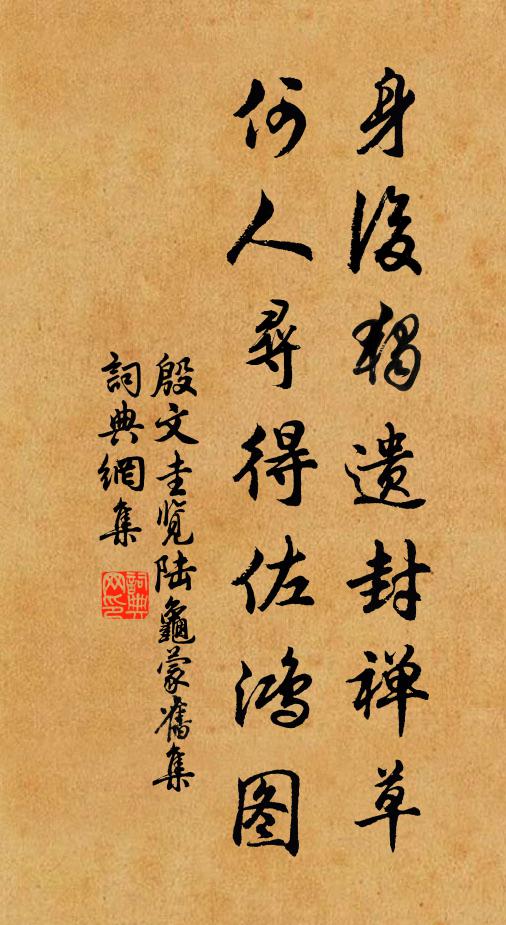 身後獨遗封禅草
何人尋得佐鸿图
殷文圭览陆龜蒙舊集
詞典網集
詞典網印